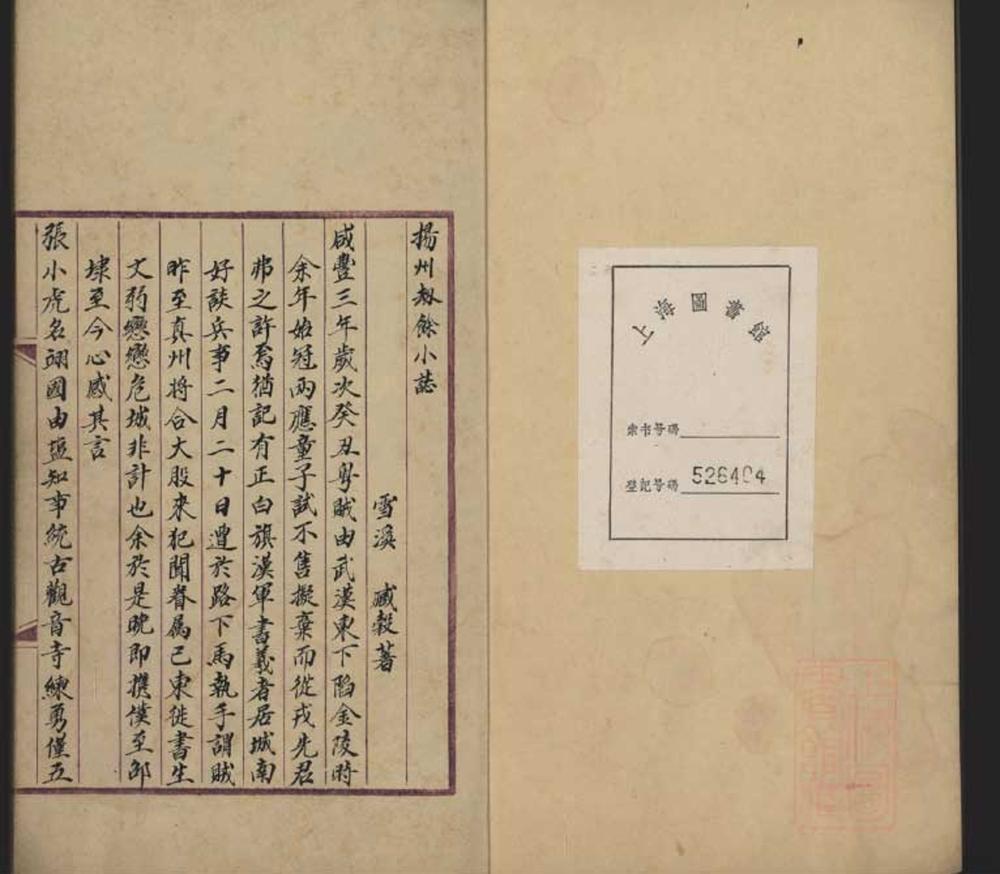 揚州劫餘小誌
雪溪 臧穀著
咸豐三年歲次癸丑粵賊由武漢東下陷金陵時
余年始冠兩應童子試不售擬棄而從戎先君
弗之許焉猶記有正白旗漢軍書義者居城南
好談兵事二月二十日遇於路下馬執手謂賊
昨至真州將合大股來犯聞眷屬已東徙書生
文弱戀戀危城非計也余於是晚即攜僕至邵
埭至今心感其言
張小虎名翊國由鹽知事統古觀音寺練勇僅五
上海圖書館
索书号碼
登記号碼 526404